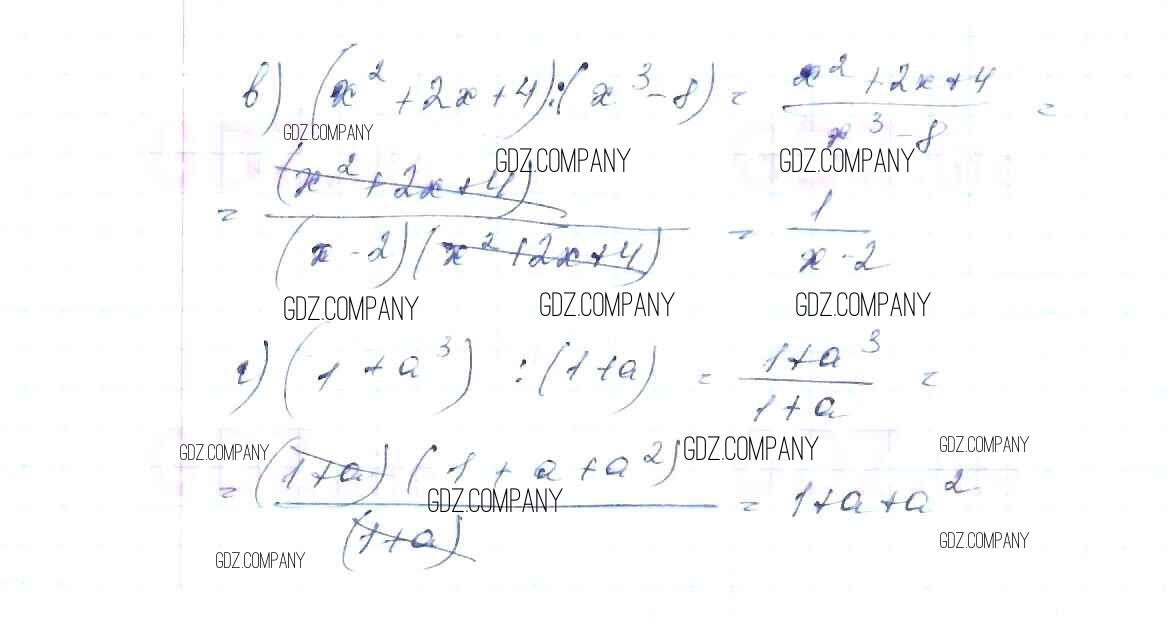 в) (x² + 2x + 4) : (x³ - 8) = x² + 2x + 4 / x³ - 8 =
GDZ.COMPANY
GDZ.COMPANY GDZ.COMPANY
= (x² + 2x + 4) / (x - 2)(x² + 2x + 4) = 1 / x - 2
GDZ.COMPANY GDZ.COMPANY GDZ.COMPANY
г) (1 + a³) : (1 + a) = 1 + a³ / 1 + a =
GDZ.COMPANY GDZ.COMPANY GDZ.COMPANY
= (1 + a)(1 + a + a²) / (1 + a) = 1 + a + a²
GDZ.COMPANY
GDZ.COMPANY GDZ.COMPANY